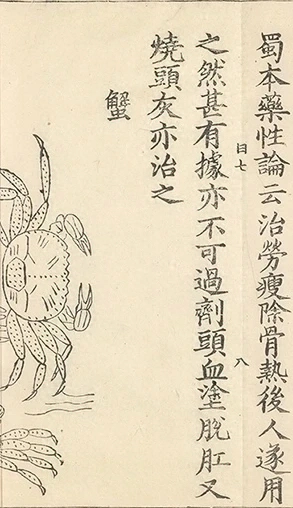 蜀本藥性論云治勞瘦除骨熱後人遂用
日七 八
之然甚有據亦不可過劑頭血塗脫肛又
燒頭灰亦治之
蟹